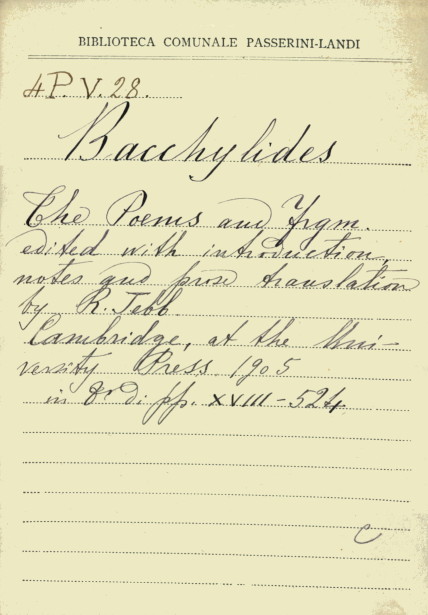 BIBLIOTECA COMUNALE PASSERINI-LANDI
4P.V.28.
Bacchylides
The Poems and Frgm.
edited with introduction,
notes and prose translation
by R. Jebb.
Cambridge, at the Uni-
versity Press 1905
in 8º di pp. XVIII-524
C